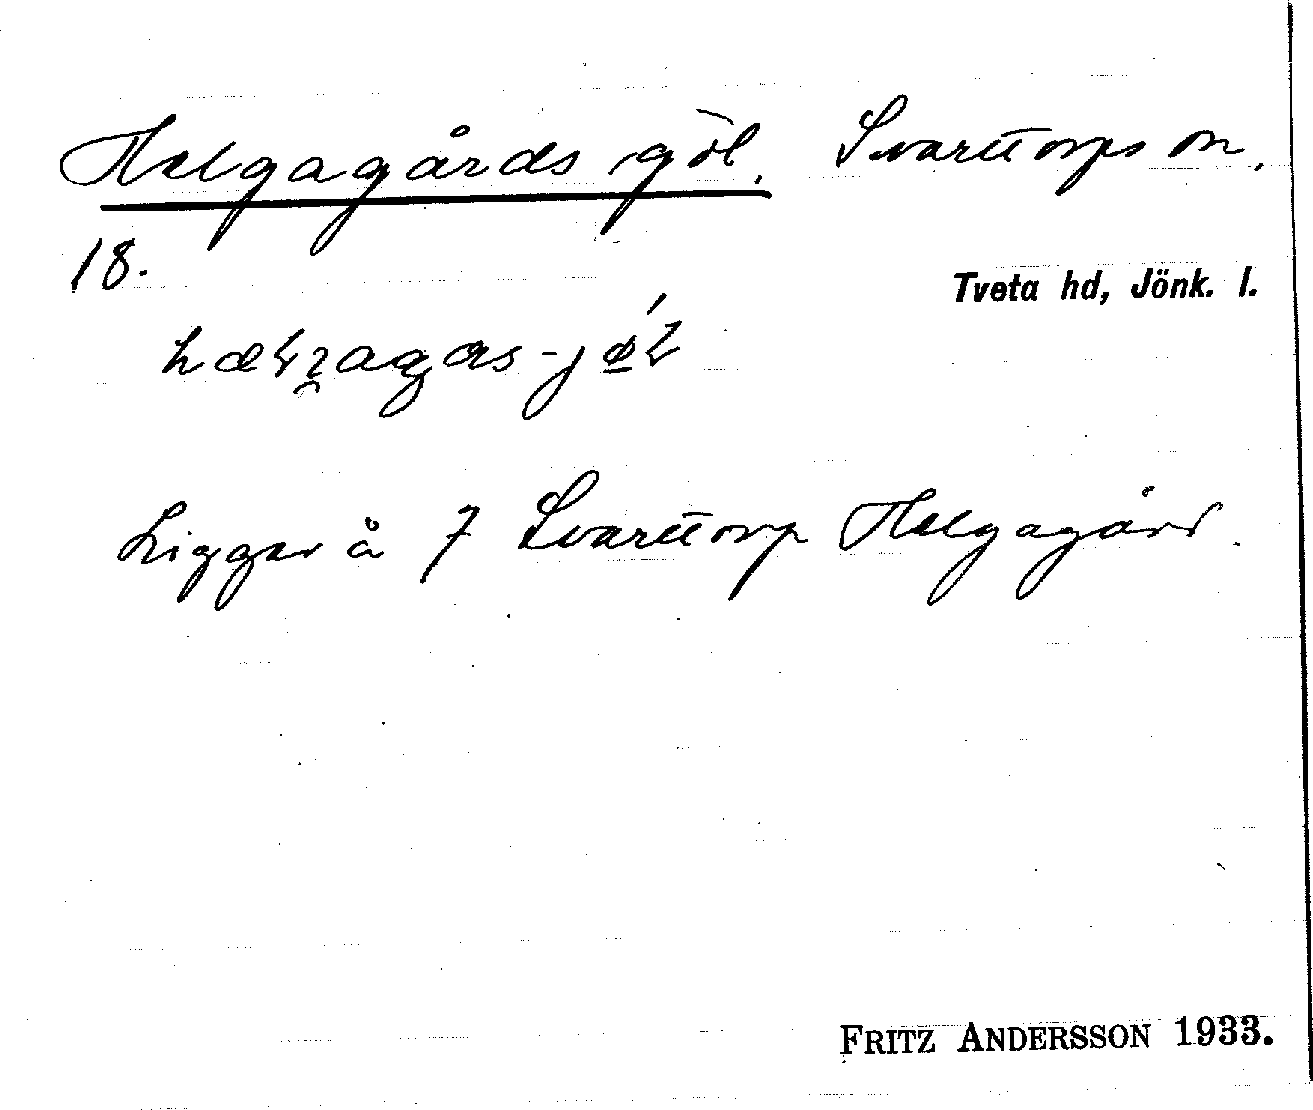 Helgagårds göl. Svarttorps sn.
18.
Tveta hd, Jönk. l.
Ligger å 7 Svarttorp Helgagård.
FRITZ ANDERSSON 1933.